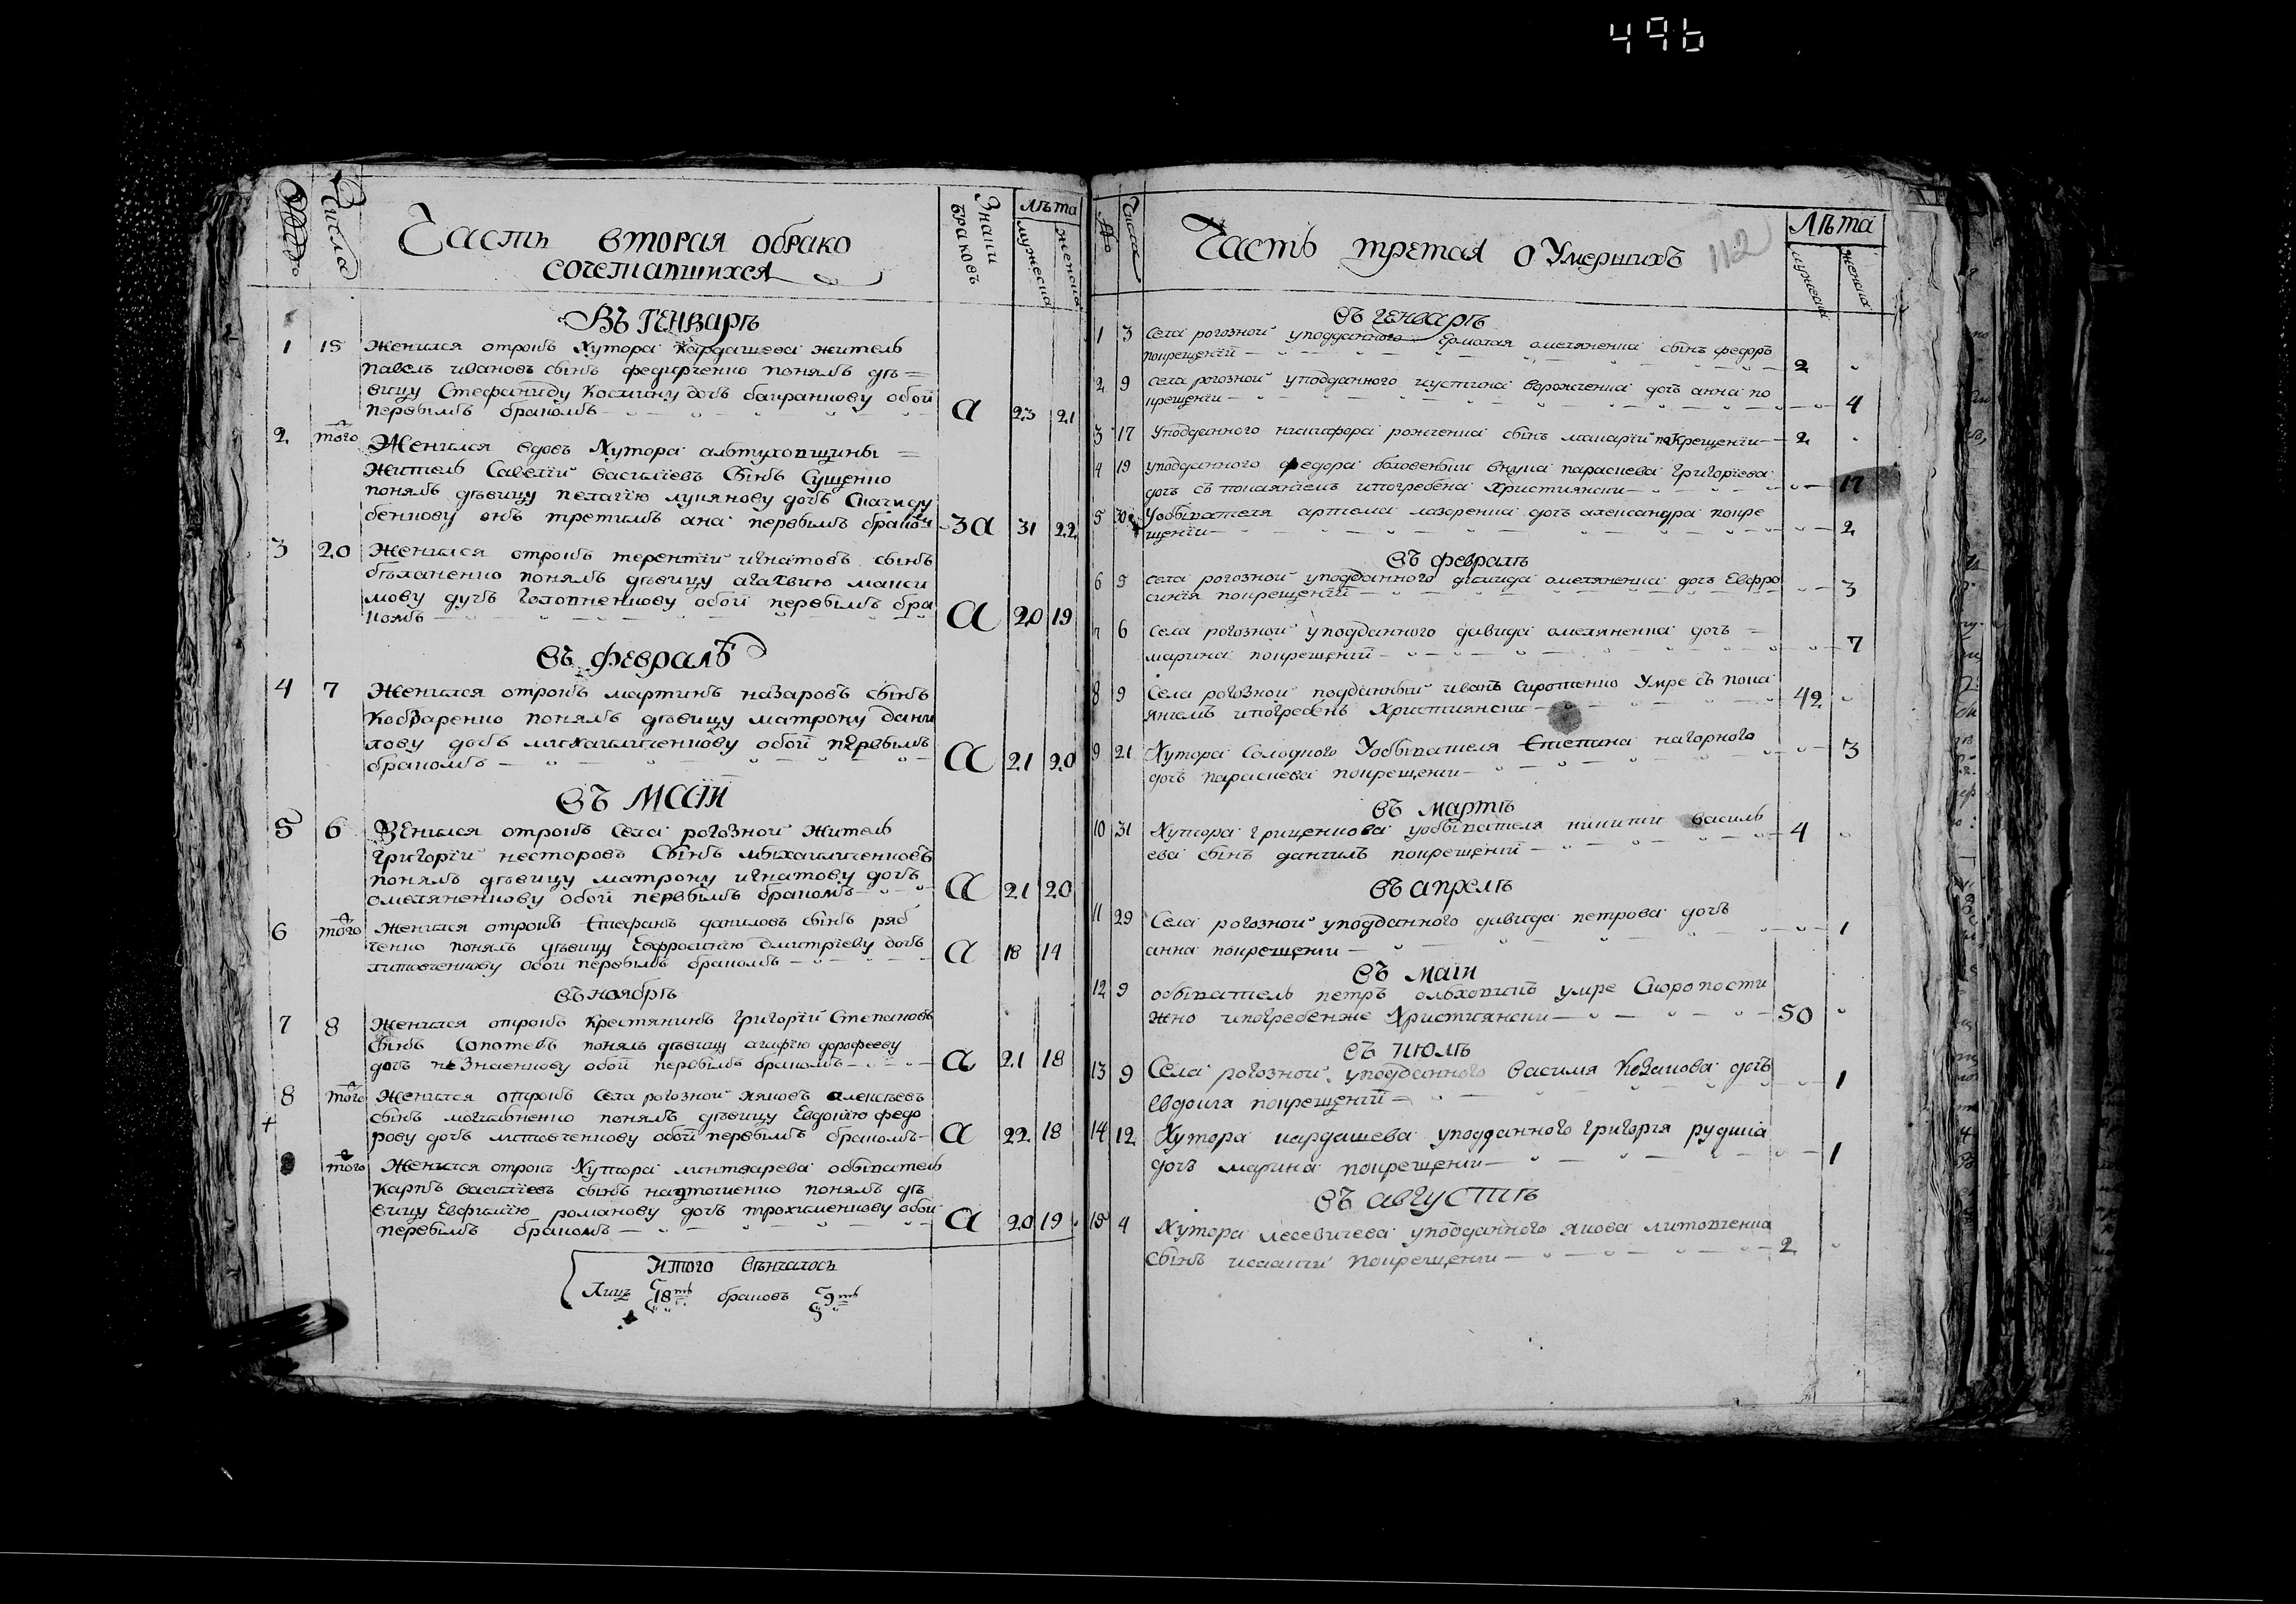 496
Числа
Часть вторая обрако
сочетавшихся
Знаки
браковъ
лѣта
мужеска
женска
Въ генварѣ
1 15 Женился отрокъ Хутора Кардашева житель
павелъ ивановъ сынъ федирченко понялъ дѣ=
вицу Стефаниду Космину дочь баиранкову обои
первымъ бракомъ а 23 21
2 того Женился вдовъ Хутора алтуховщины =
житель Савелїй васильевъ Сынъ Сущенко
понялъ дѣвицу пелагїю лукянову дочь
бенкову онъ третимъ ана первымъ бракомъ 3а 31 22
3 20 Женился отрокъ терентїй игнатовъ сынъ
понялъ дѣвицу агафию макси
мову дучъ головченкову обои первымъ бра
комъ а 20 19
въ февралѣ
4 7 Женился отрокъ мартинъ назаровъ сынъ
Кобзаренко понялъ дѣвицу матрону дани
лову дочь михаиличенкову обои первымъ
бракомъ а 21 20
въ маїи
5 6 Женился отрокъ Села рогозной житель
григорїй несторовъ Сынъ михаиличенковъ
понялъ дѣвицу матрону игнатову дочь
омеляненкову обои первымъ бракомъ а 21 20
6 того Женился отрокъ Стефанъ даниловъ сынъ ряб
ченко понялъ дѣвицу Евфросинїю Дмитрїеву дочь
литовченкову обои первымъ бракомъ а 18 14
въ ноябрѣ
7 8 Женился отрокъ Крестянинъ григорїй Степановъ
сынъ Сопотевъ понялъ дѣвицу агафїю дорофееву
дочь незнаенкову обои первымъ бракомъ а 21 18
8 того Женился отрокъ Села рогозной яковъ алексѣевъ
сынъ могильненко понялъ дѣвицу Евдокїю федо
рову дочь литовченкову обои первымъ бракомъ а 22 18
того Женился отрокъ Хутора линтварева обыватель
Карпъ василїевъ сынъ надточиенко понялъ дѣ
вицу Евфимїю романову дочь трохименкову обои
первымъ бракомъ а 20 19
Итого Вѣнчалось
Лицъ 18ть браковъ 9ть
№ Числа
Часть третая о Умершихъ
112
Лѣта
мужеска
женска
въ генварѣ
1 3 Села рогозной уподданного Ермолая омеляненка сынъ федоръ
покрещенїи 2
2 9 Села рогозной уподданного иустина ворожченка дочь анна по
крещенїи 4
3 17 Уподданного никифора рожченка сынъ макарїй покрещенїи 2
4 19 уподданного федора внука параскева григорїева
дочь съ покаянїемъ ипогребена Християнски 17
5 30 Уобывателя артема лазоренка дочь александра покре
щенїи 2
въ февралѣ
6 5 Села рогозной уподданного омеляненка дочь Евфро
синїя покрещенїи 3
7 6 Села рогозной уподданного давида омеляненка дочь =
марина покрещенїи 7
8 9 Села рогозной подданный иванъ Сиротенко Умре съ пока
янїемъ ипогребенъ Християнски 42
9 21 Хутора Солодного Уобывателя Степана нагорного
дочь параскева покрещенїи 3
въ мартѣ
10 31 Хутора гриценкова уобывателя никити василь
ева сынъ данилъ покрещенїи 4
въ апрелѣ
11 29 Села рогозной уподданного давида петрова дочь
анна покрещенїи 1
въ маїи
12 9 обыватель петръ ольховикъ умре Скоропости
жно ипогребенже Християнски 50
въ июлѣ
13 9 Села рогозной уподданного Василя Козакова дочь
Евдокия покрещенїи 1
14 12 Хутора кардашева уподданного григория рудика
дочь марина покрещенїи 1
въ августѣ
15 4 Хутора лесевичева уподданного якова литовченка
сынъ исаакїй покрещенїи 2